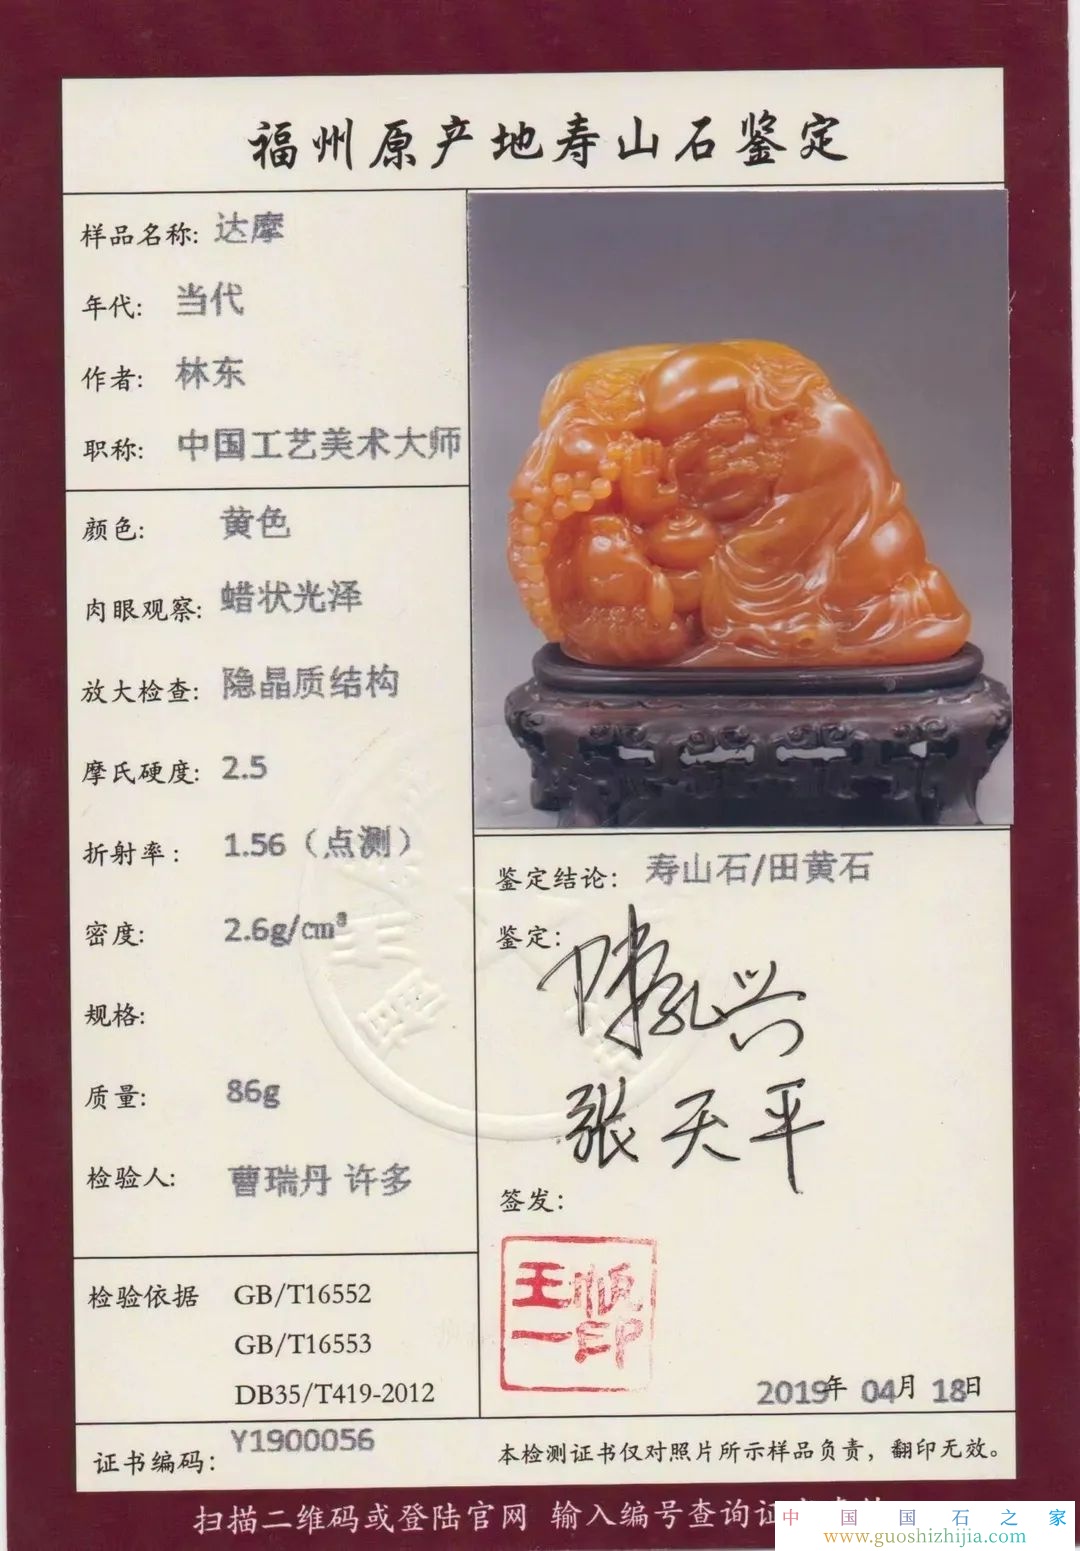 福州原产地寿山石鉴定
样品名称: 达摩
年代: 当代
作者: 林东
职称: 中国工艺美术大师
颜色: 黄色
肉眼观察: 蜡状光泽
放大检查: 隐晶质结构
摩氏硬度: 2.5
折射率: 1.56（点测）
密度: 2.6g/cm³
规格:
质量: 86g
检验人: 曹瑞丹 许多
检验依据 GB/T16552
GB/T16553
DB35/T419-2012
证书编码: Y1900056
鉴定结论: 寿山石/田黄石
鉴定:
张天平
签发:
王
一印
2019年 04月 18日
本检测证书仅对照片所示样品负责，翻印无效。
扫描二维码或登陆官网 输入编号查询证
中国国石之家
www.guoshizhijia.com